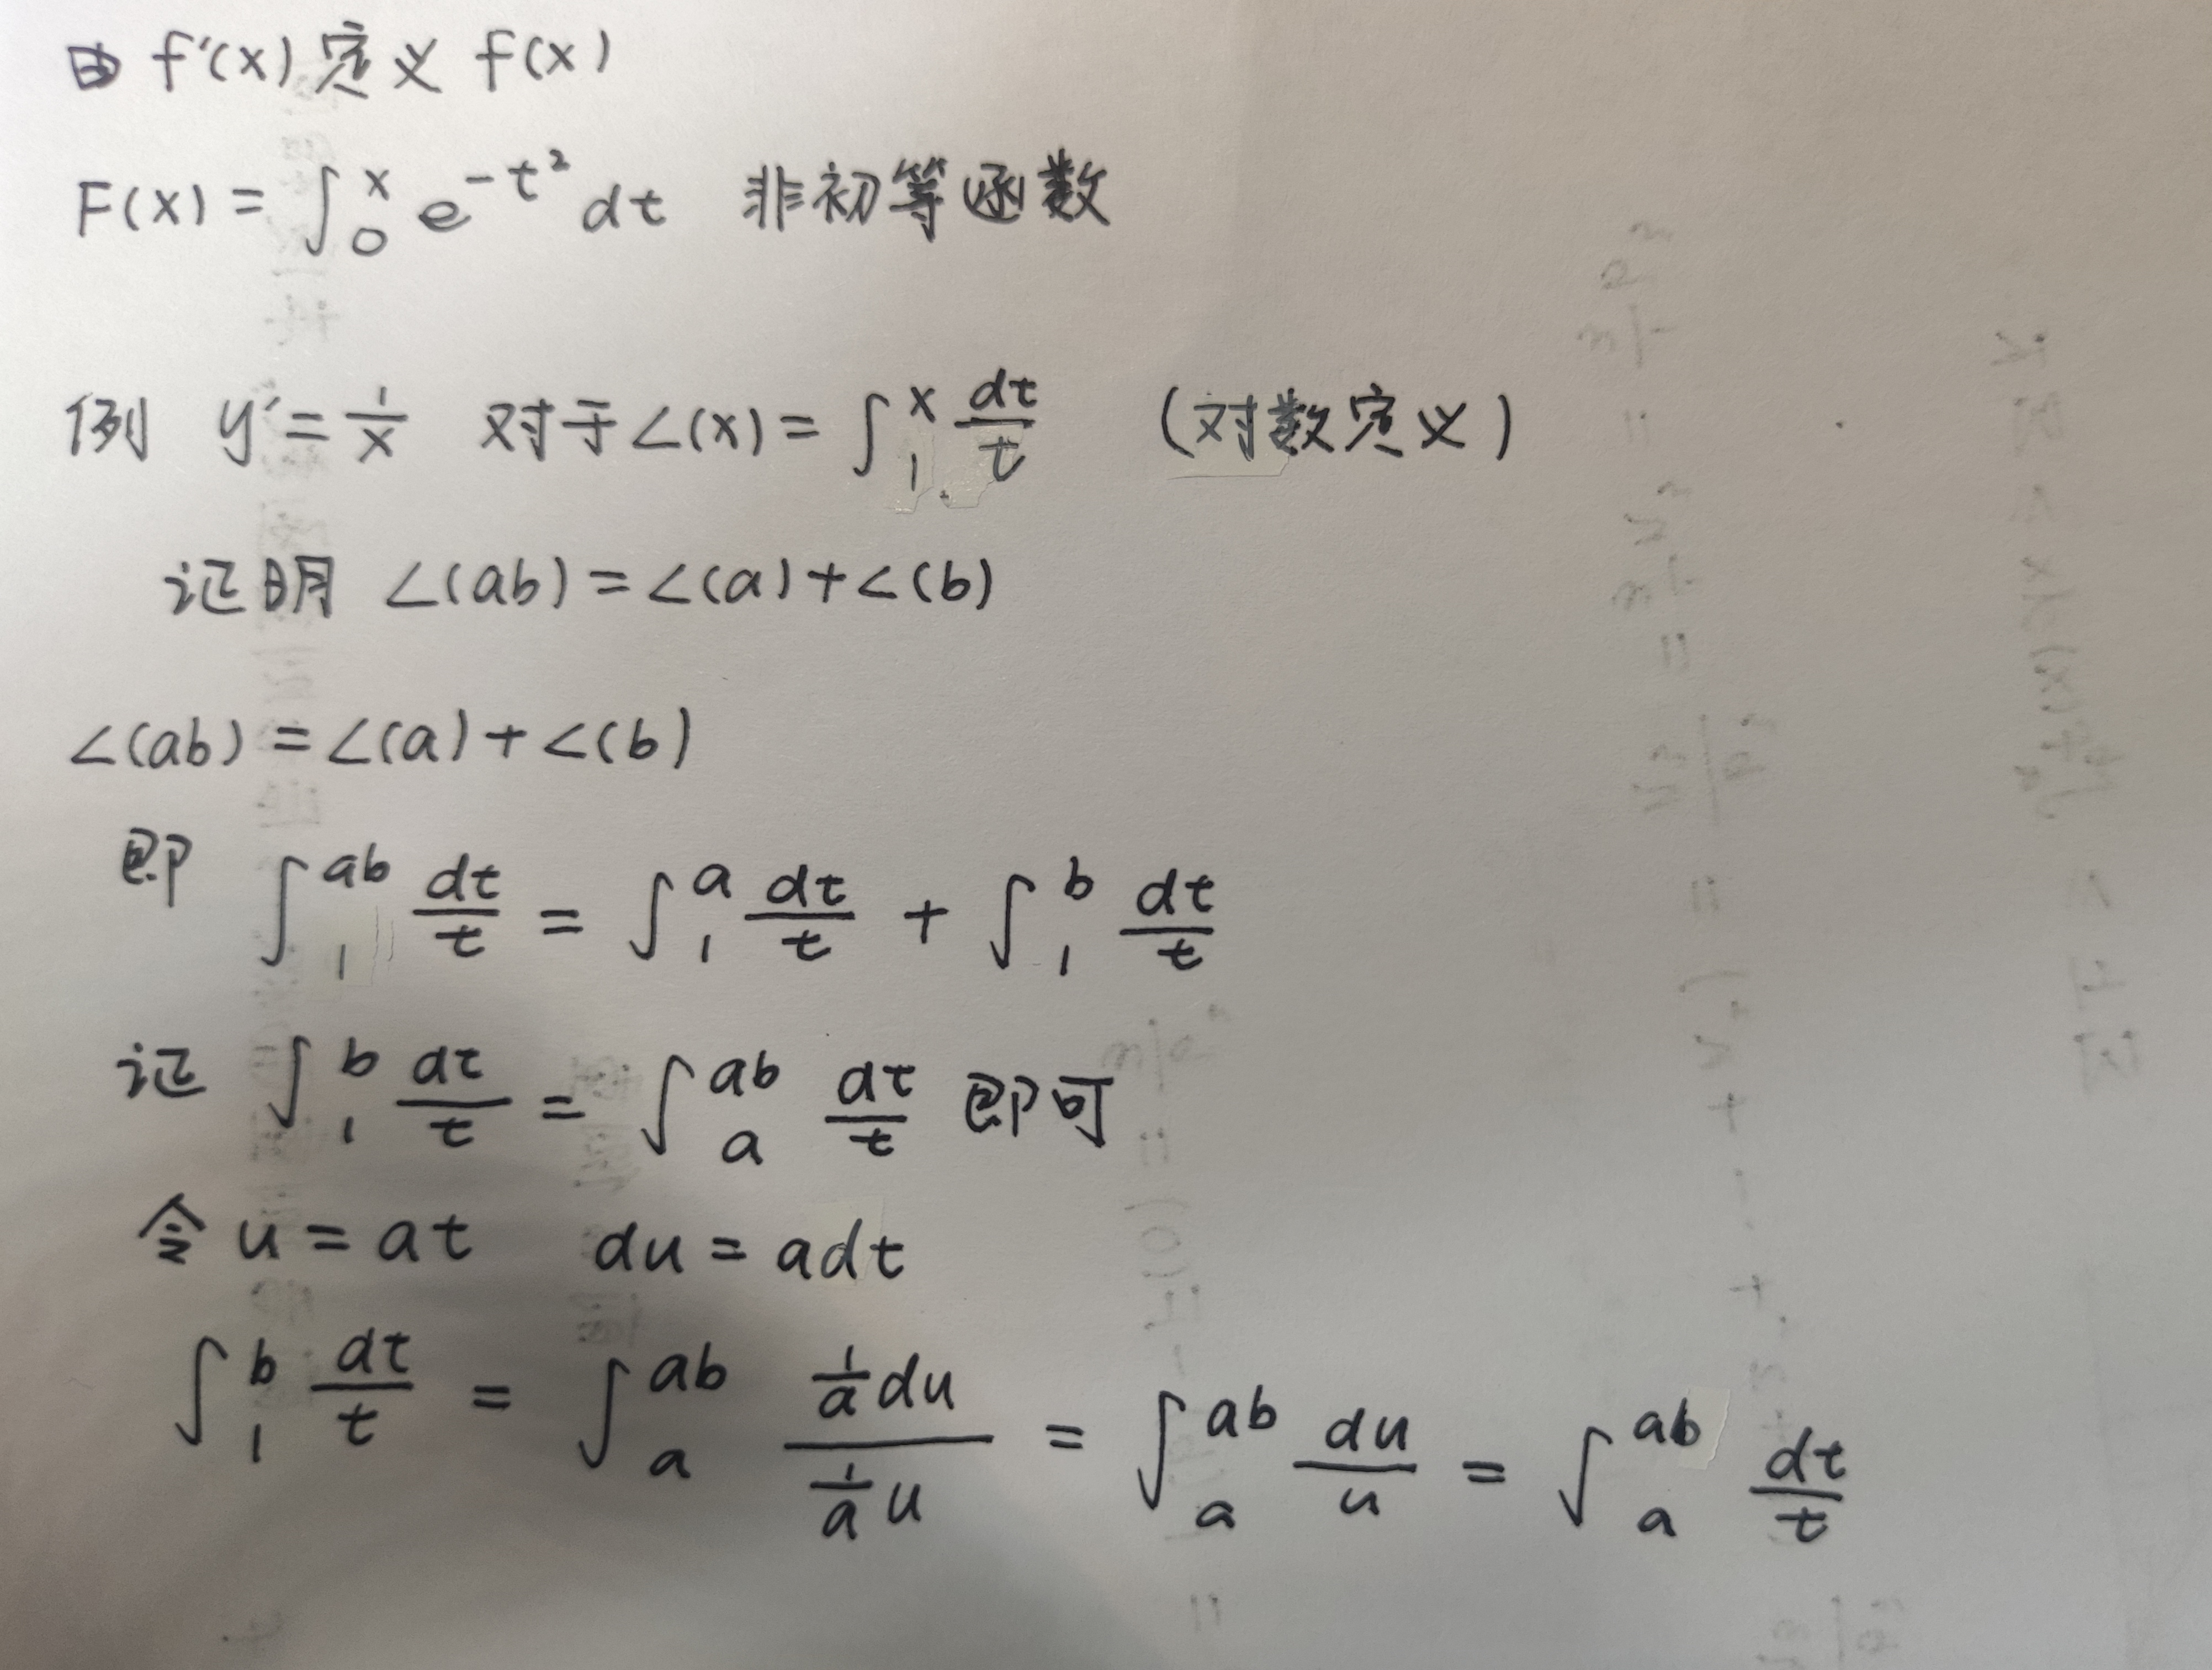 由 f'(x) 定义 f(x)
F(x) = ∫₀ˣ e^(-t²) dt 非初等函数
例 y' = 1/x 对于 L(x) = ∫₁ˣ dt/t (对数定义)
证明 L(ab) = L(a) + L(b)
L(ab) = L(a) + L(b)
即 ∫₁^(ab) dt/t = ∫₁^a dt/t + ∫₁^b dt/t
证 ∫₁^b dt/t = ∫_a^(ab) dt/t 即可
令 u = at du = adt
∫₁^b dt/t = ∫_a^(ab) (1/a du)/(1/a u) = ∫_a^(ab) du/u = ∫_a^(ab) dt/t